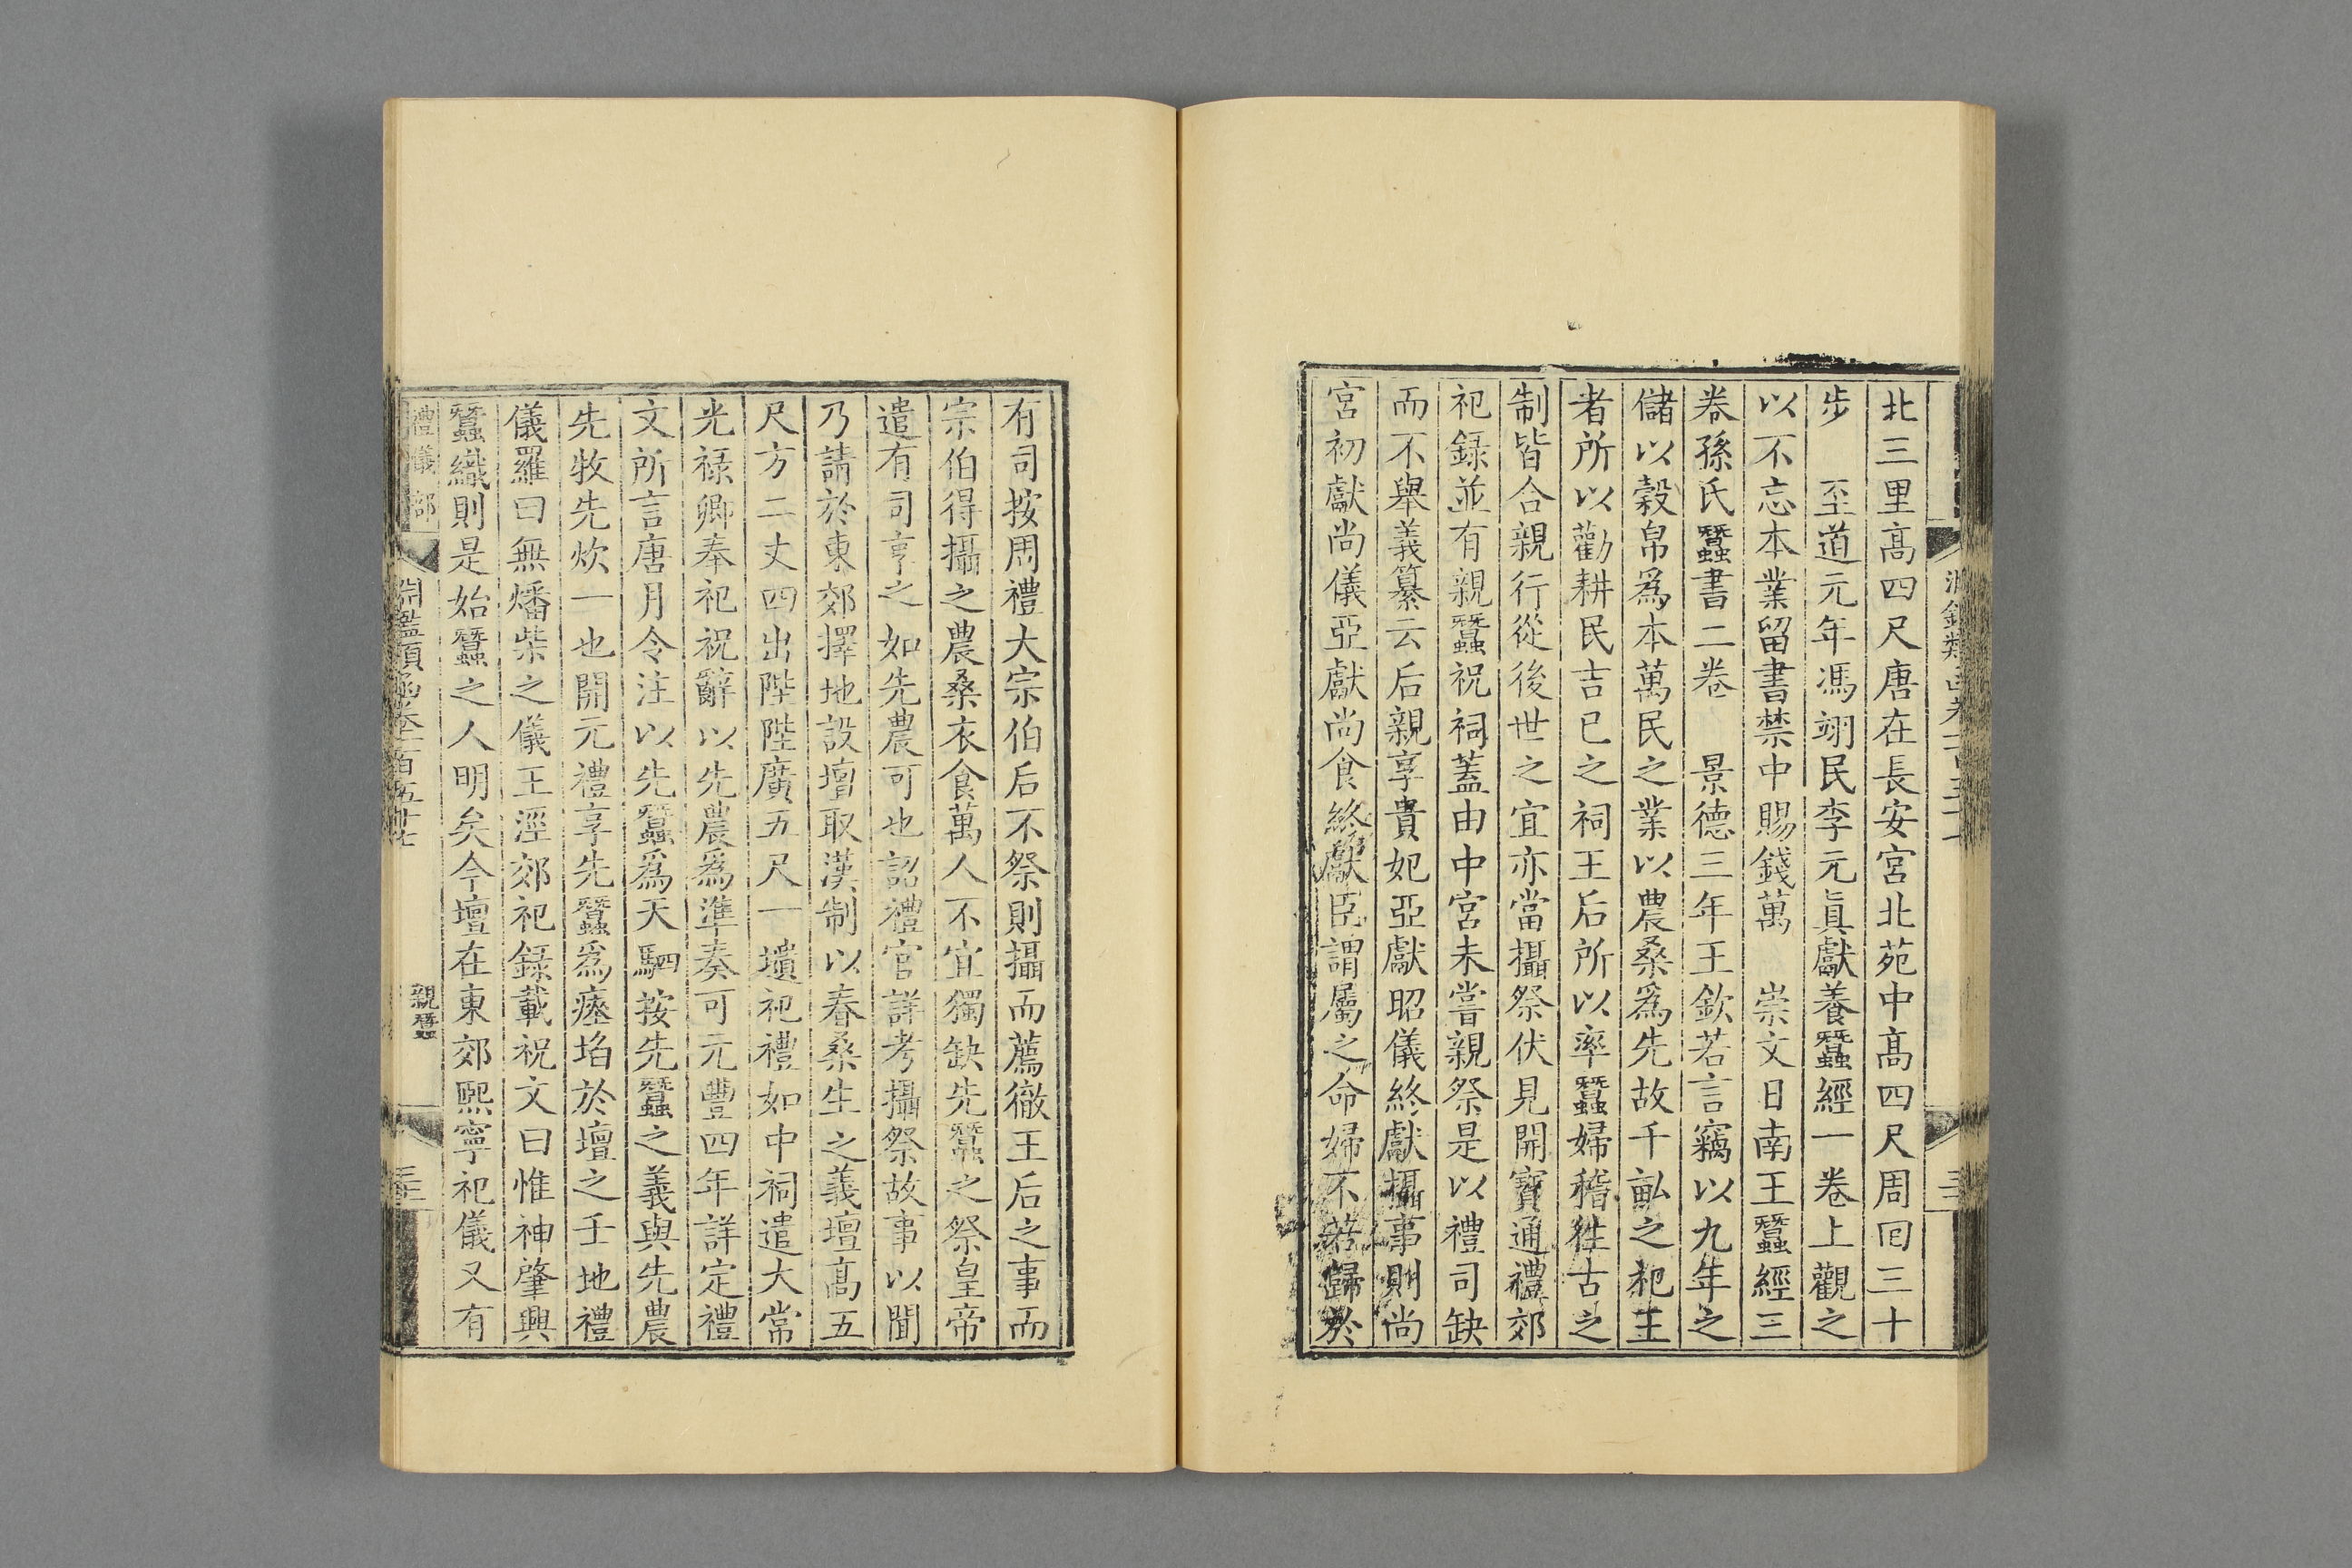 北三里高四尺唐在長安宮北苑中高四尺周囘三十
步　至道元年馮翊民李元眞獻養蠶經一卷上觀之
以不忘本業留書禁中賜錢萬　崇文目南王蠶經三
卷孫氏蠶書二卷　景德三年王欽若言竊以九年之
儲以穀帛爲本萬民之業以農桑爲先故千畝之祀王
者所以勸耕民吉巳之祠王后所以率蠶婦稽徃古之
制皆合親行從後世之宜亦當攝祭伏見開寶通禮郊
祀録並有親蠶祝祠蓋由中宮未嘗親祭是以禮司缺
而不舉義纂云后親享貴妃亞獻昭儀終獻攝事則尚
宮初獻尚儀亞獻尚食終獻臣謂屬之命婦不若歸於
有司按周禮大宗伯后不祭則攝而薦徹王后之事而
宗伯得攝之農桑衣食萬人不宜獨缺先蠶之祭皇帝
遣有司享之如先農可也詔禮官詳考攝祭故事以聞
乃請於東郊擇地設壇取漢制以春桑生之義壇高五
尺方二丈四出陛陛廣五尺一壝祀禮如中祠遣大常
光禄卿奉祀祝辭以先農爲準奏可元豐四年詳定禮
文所言唐月令注以先蠶爲天駟按先蠶之義與先農
先牧先炊一也開元禮享先蠶爲瘞埳於壇之壬地禮
儀羅曰無燔柴之儀王涇郊祀録載祝文曰惟神肇興
蠶織則是始蠶之人明矣今壇在東郊熙寧祀儀又有
禮儀部　淵鑑類函卷一百五十七　親蠶